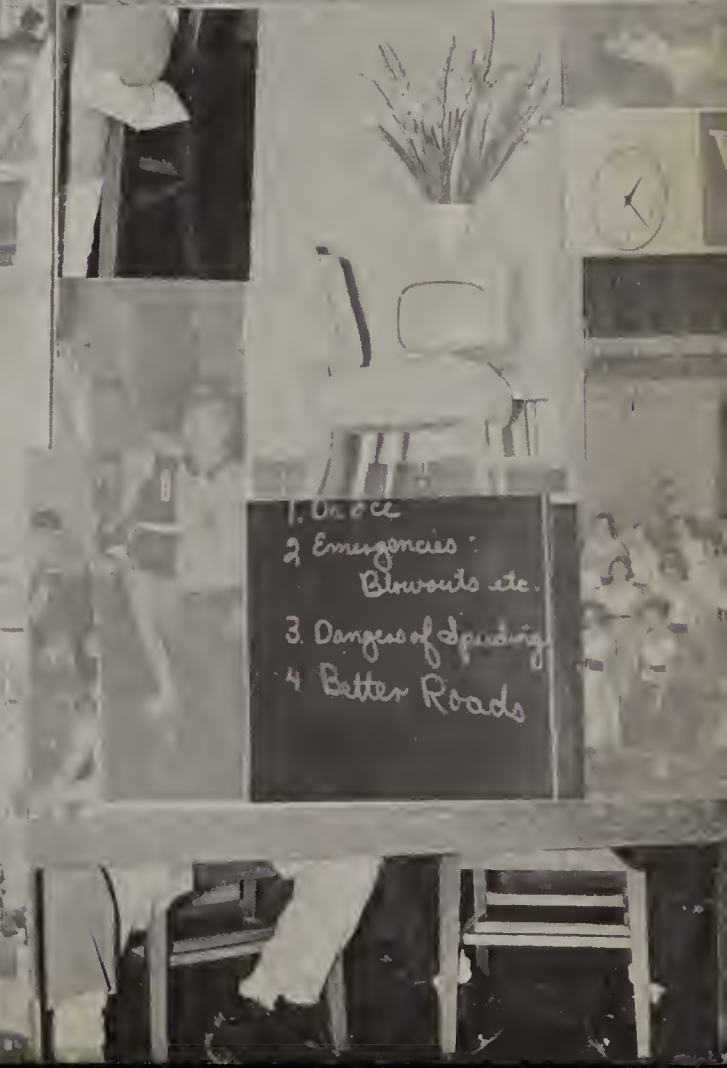 1.
2 Emergencies:
Blowouts etc.
3. Dangers of Speeding
4 Better Roads